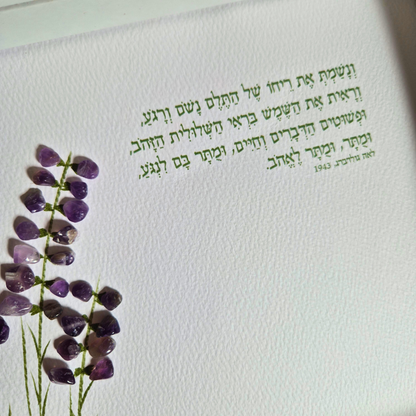 וְנָשַׁמְתָּ אֶת רֵיחוֹ שֶׁל הַתֶּלֶם נָשֹׁם וְרָגֹעַ,
וְרָאִיתָ אֶת הַשֶּׁמֶשׁ בִּרְאִי הַשְּׁלוּלִית הַזָּהֹב,
וּפְשׁוּטִים הַדְּבָרִים וְחַיִּים, וּמֻתָּר בָּם לִנְגֹּעַ,
וּמֻתָּר, וּמֻתָּר לֶאֱהֹב.
לאה גולדברג, 1943